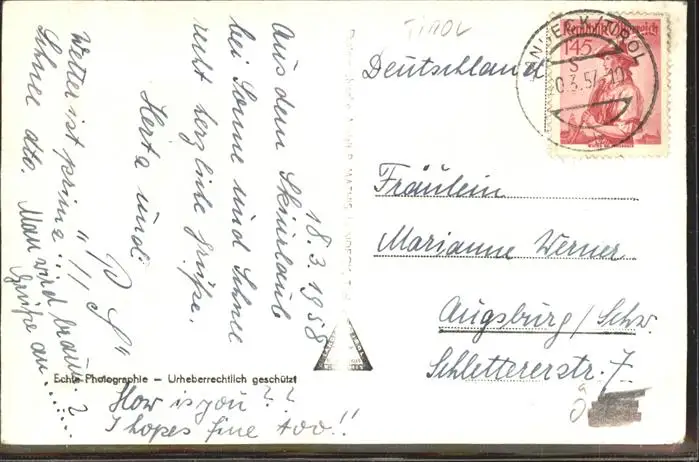 TIROL
Deutschland
Republik Österreich
1.45
LANDECK/TIROL
Fräulein
Marianne Werner
Augsburg/Schw.
Schlettererstr. 7
18.3.1958
Aus dem Skiurlaub
bei Sonne und Schnee
herzliche Grüße.
Herta und
Wetter ist prima...
Schnee dto. Man wird braun?
Grüße an......
Echte Photographie – Urheberrechtlich geschützt
How is you??
I hopes fine too!!